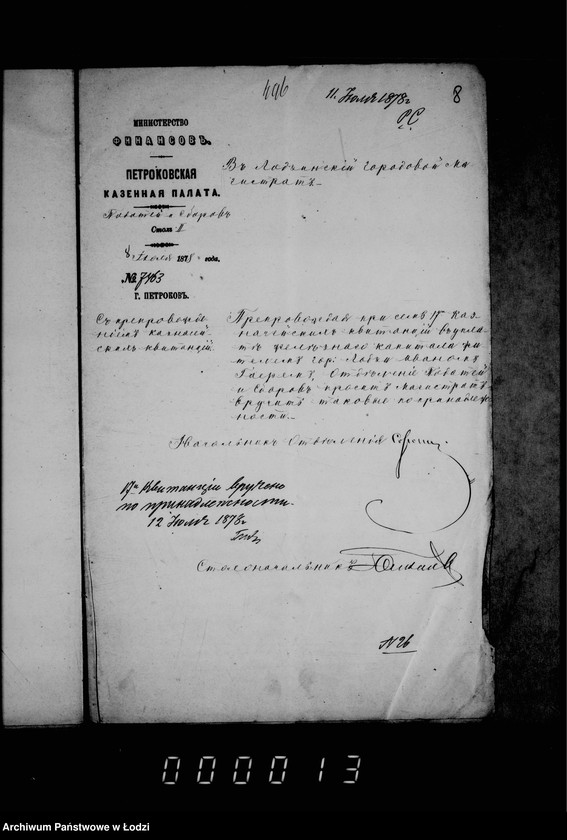 496
11. Юоля 1878 г
8
Р.С
МИНИСТЕРСТВО
ФИНАНСОВЪ.
ПЕТРОКОВСКАЯ
КАЗЕННАЯ ПАЛАТА.
Податей и Сборовъ
Столъ II
8 Юоля 1878 года.
№ 7463
Г. ПЕТРОКОВЪ.
Въ Лодзинскій Городовой Ма-
гистратъ
Съ препровожде-
ніемъ казначей-
скихъ квитанцій.
Препровождая при семъ 17 Каз-
начейскихъ квитанцій въ
капитала жи-
телемъ гор: Лодзи
Отдѣленіе Податей
и Сборовъ проситъ Магистратъ
вручить таковые по принадлеж-
ности.
Начальникъ Отдѣленія
17 Квитанціи вручено
по принадлежности
12 Юоля 1878 г
Столоначальникъ
N 26
000013
Archiwum Państwowe w Łodzi